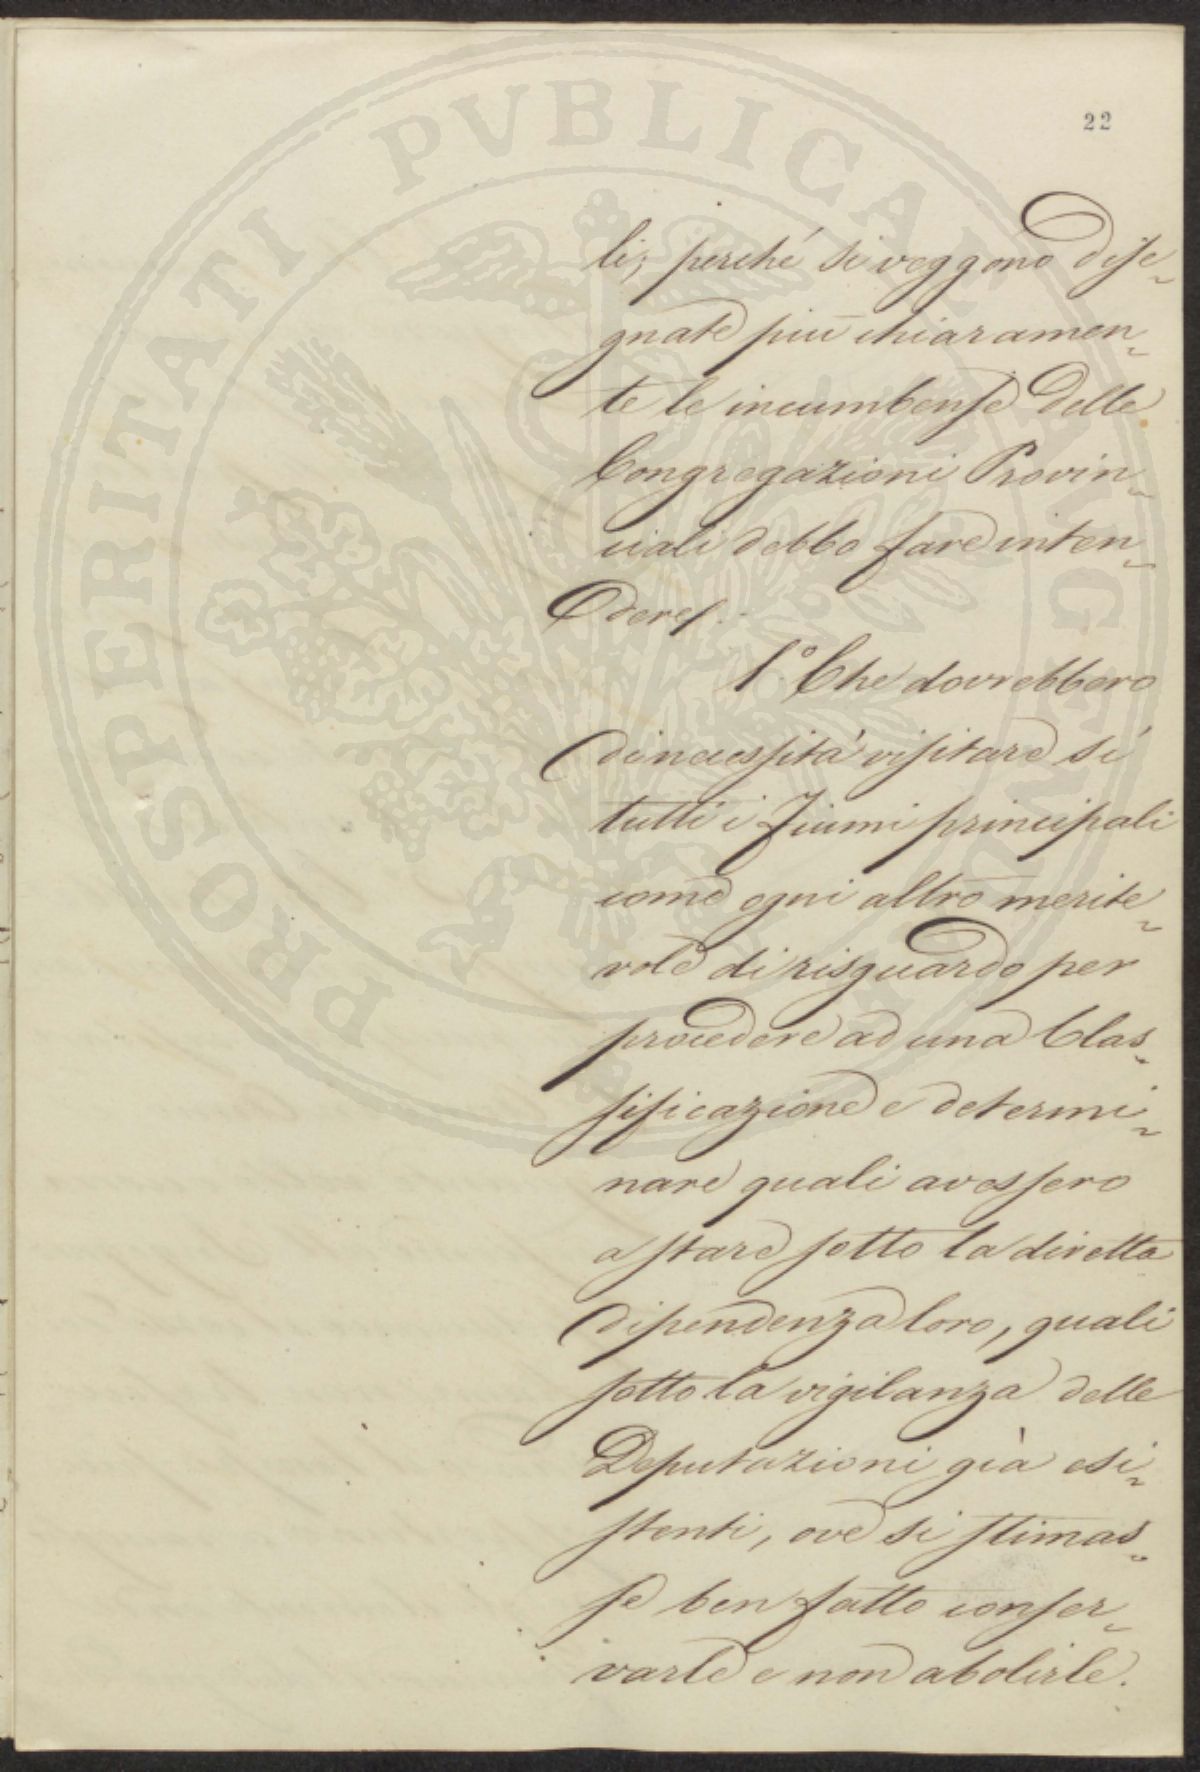 22
li, perché si veggono dise-
gnate più chiaramen-
te le incumbense delle
Congregazioni Provin-
ciali debbo fare inten-
dere:
1.° Che dovrebbero
di necessità visitare sì
tutti i Fiumi principali
come ogni altro merite-
vole di risguardo per
procedere ad una Clas-
sificazione e determi-
nare quali avessero
a stare sotto la diretta
dipendenza loro, quali
sotto la vigilanza delle
Deputazioni già esi-
stenti, ove si stimas-
se ben fatto conser-
varle e non abolirle.
PROSPERITATI PVBLICAE